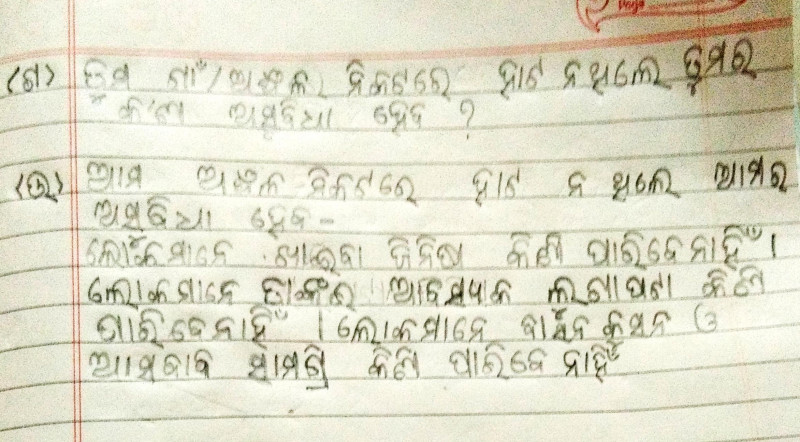 Page
(ଗ) ତୁମ ଗାଁ/ଅଞ୍ଚଳ ନିକଟରେ ହାଟ ନଥିଲେ ତୁମର
କ'ଣ ଅସୁବିଧା ହେବ ?
(ଉ) ଆମ ଅଞ୍ଚଳ ନିକଟରେ ହାଟ ନ ଥିଲେ ଆମର
ଅସୁବିଧା ହେବ -
ଲୋକମାନେ ଖାଇବା ଜିନିଷ କିଣି ପାରିବେ ନାହିଁ ।
ଲୋକମାନେ ତାଙ୍କର ଆବଶ୍ୟକ ଲୁଗାପଟା କିଣି
ପାରିବେ ନାହିଁ । ଲୋକମାନେ ବାସନ କୁସନ ଓ
ଆସବାବ ସାମଗ୍ରି କିଣି ପାରିବେ ନାହିଁ